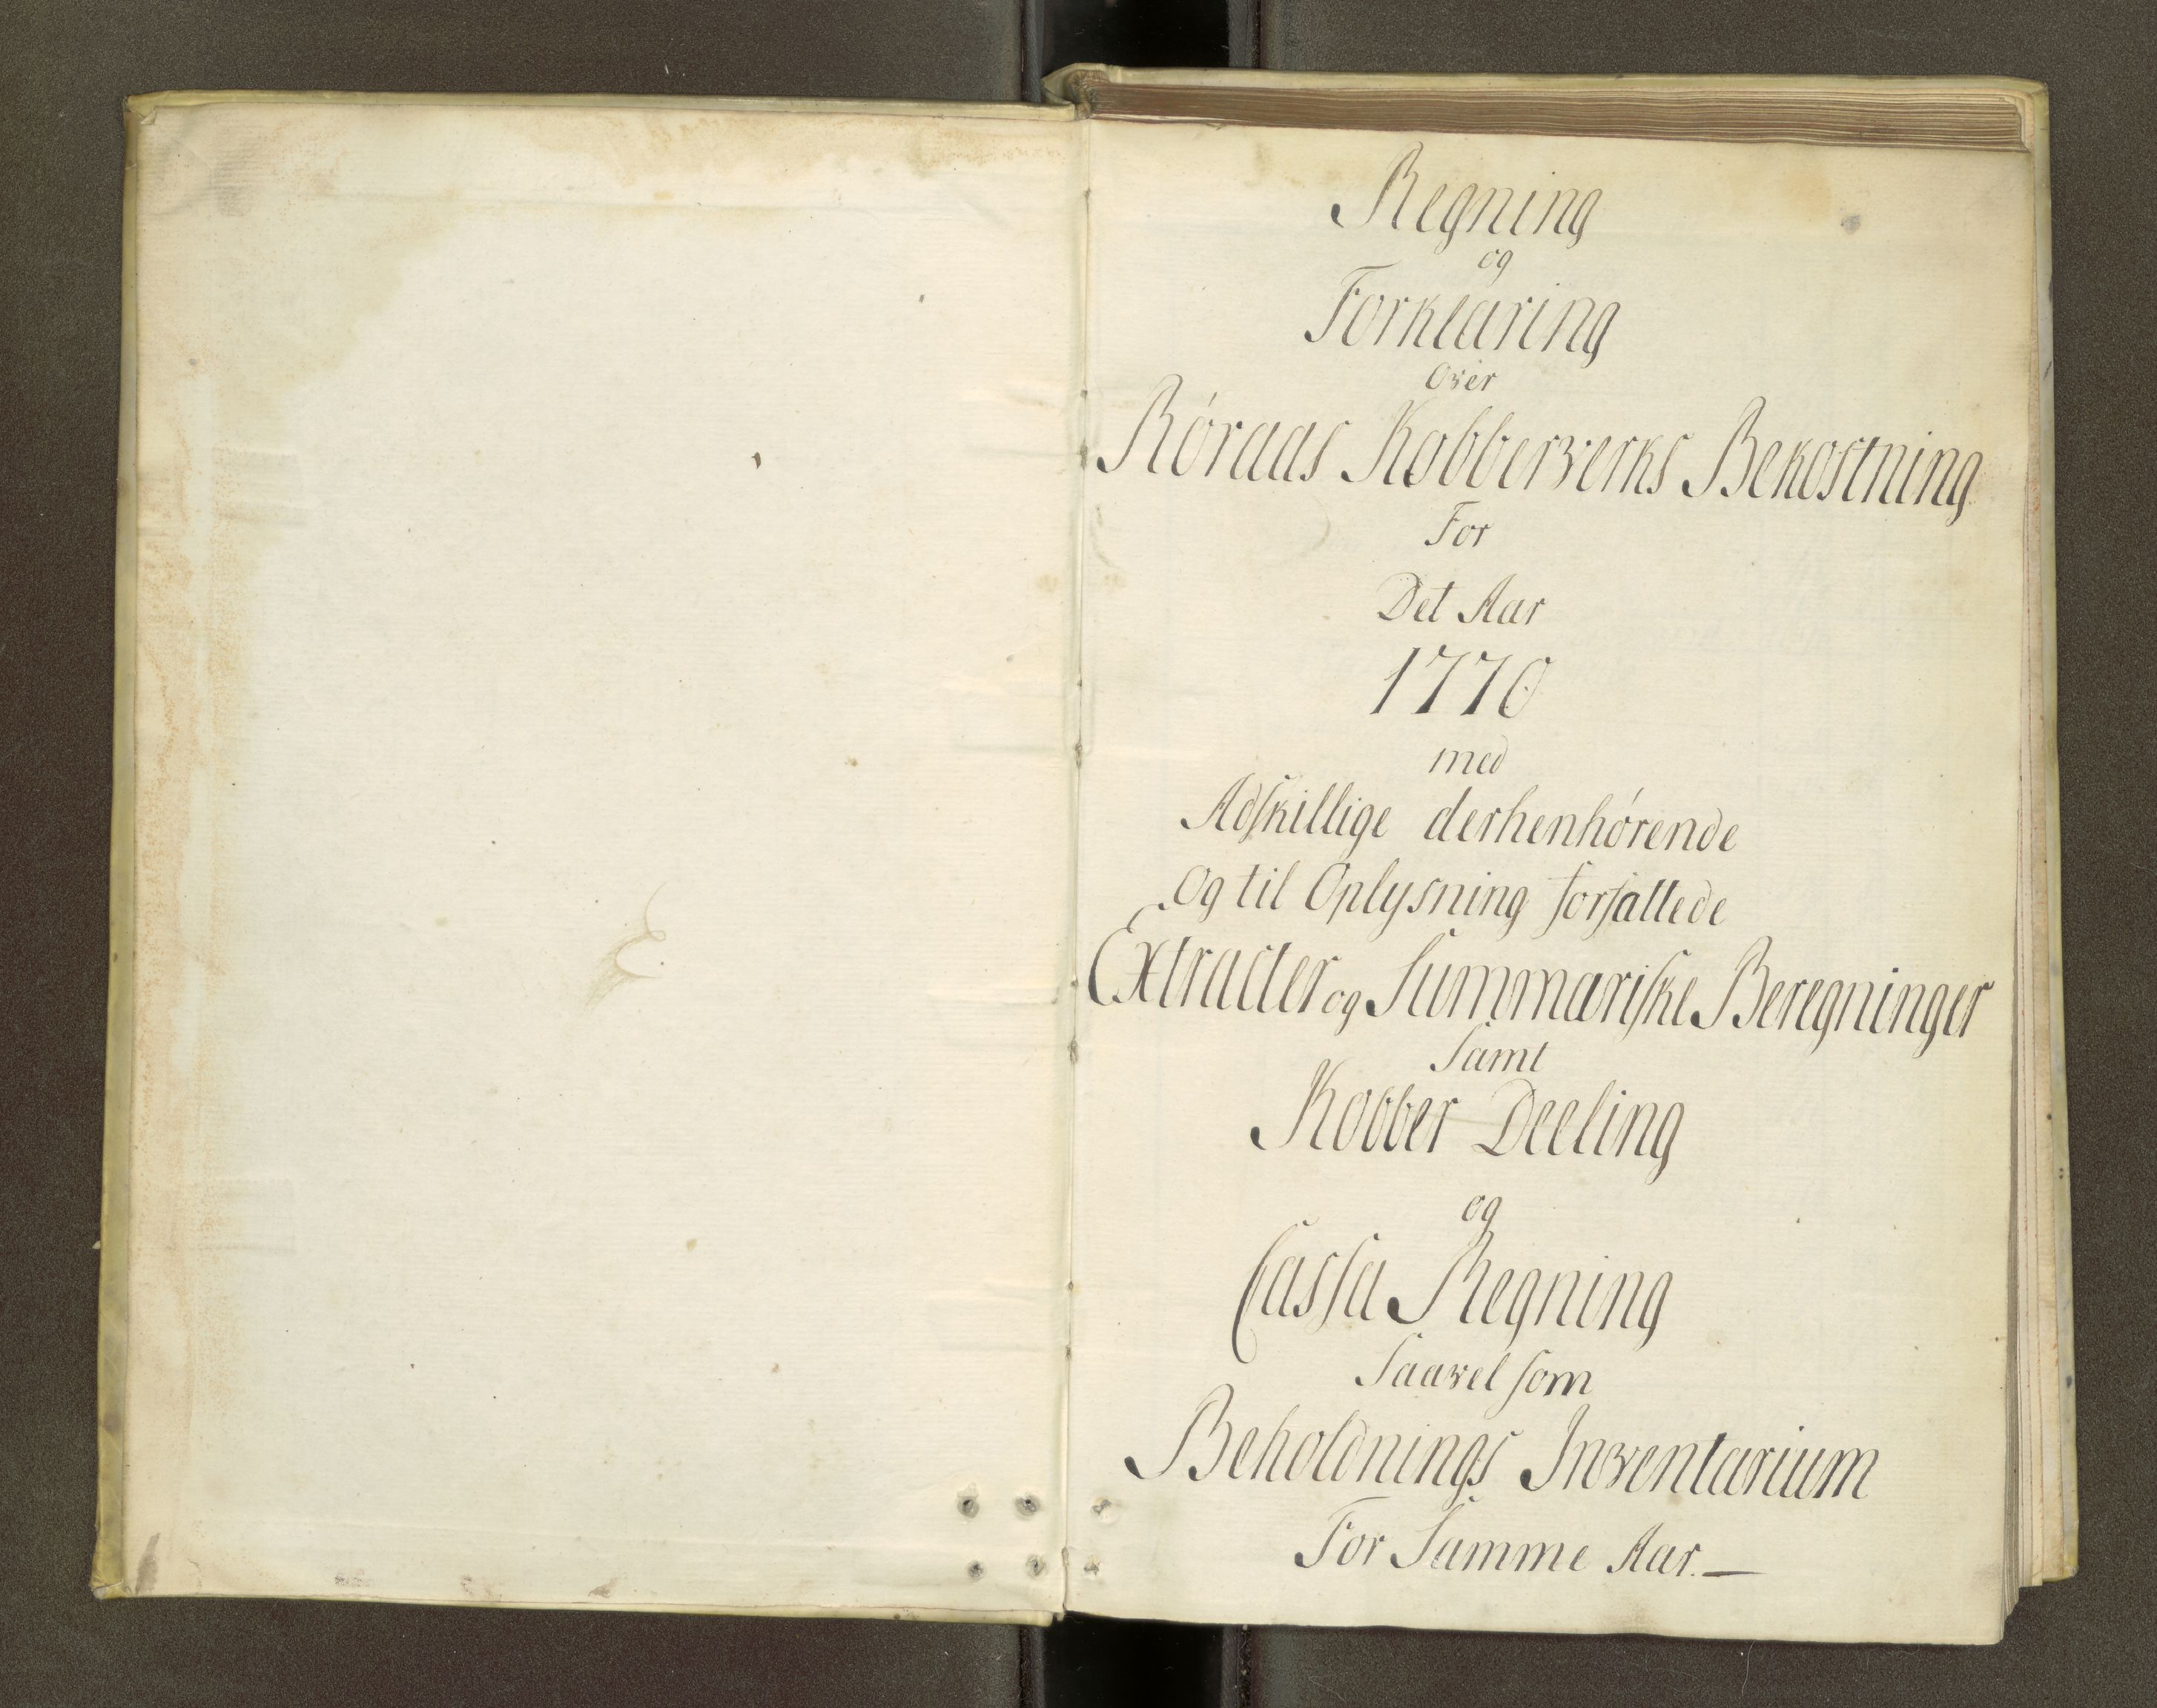 Regning
og
Forklaring
Over
Róraas Kobberverks Bekostning
For
Det Aar
1770
med
Adskillige derhenhórende
og til Oplysning forfattede
Extracter og Summariske Beregninger
Samt
Kobber Deeling
og
Cassa Regning
Saavel som
Beholdnings Inventarium
For Samme Aar.—